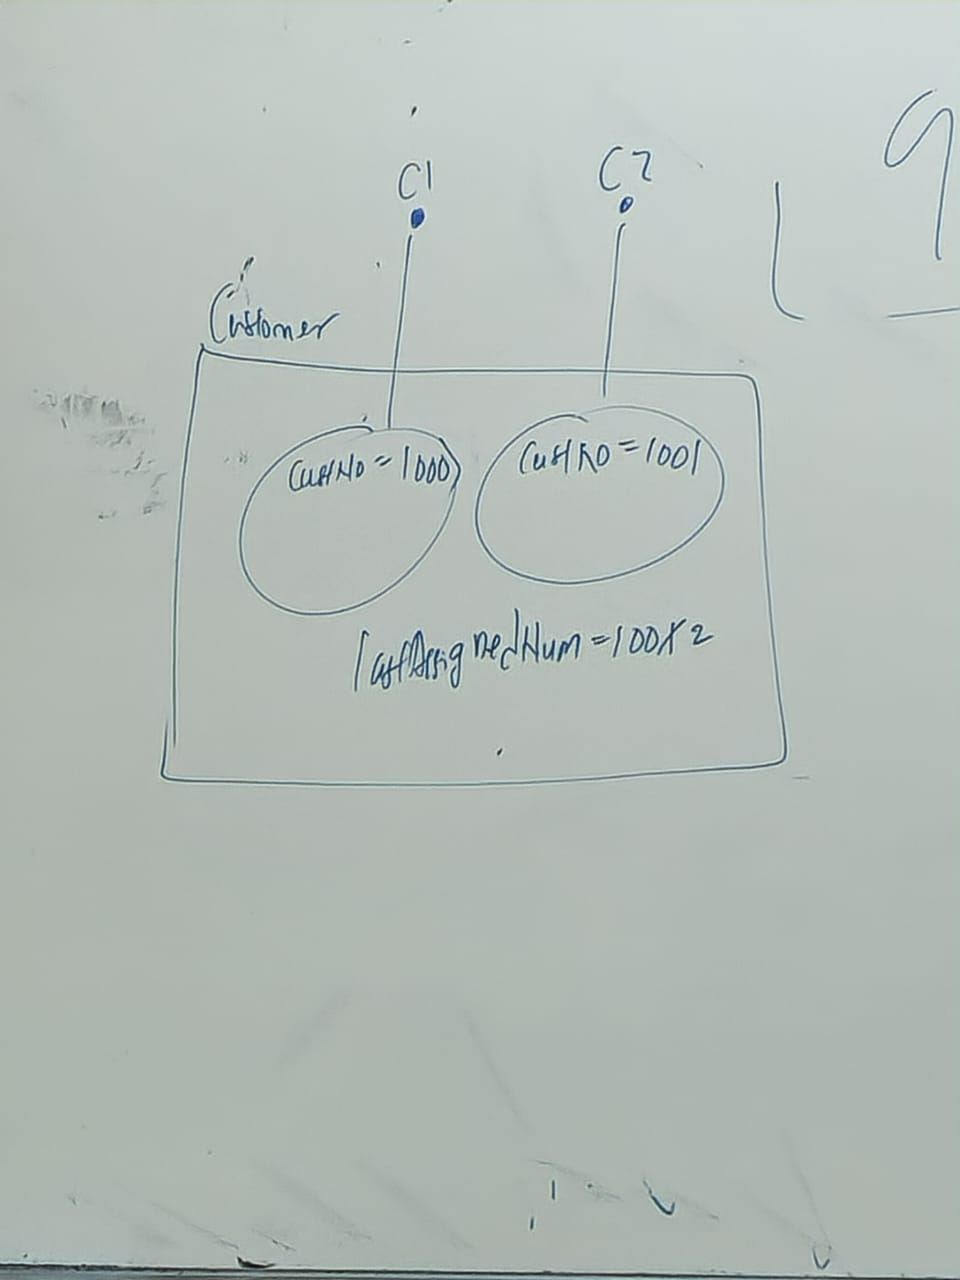 9
C1 C2
Customer
CustNo = 1000 CustNo = 1001
lastAssignedNum = 100X 2